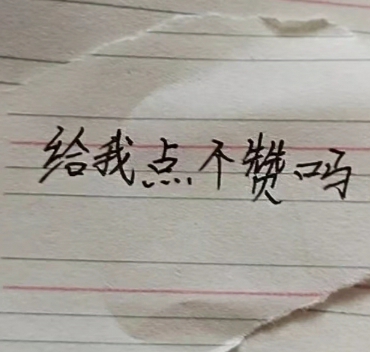 给我点个赞吗